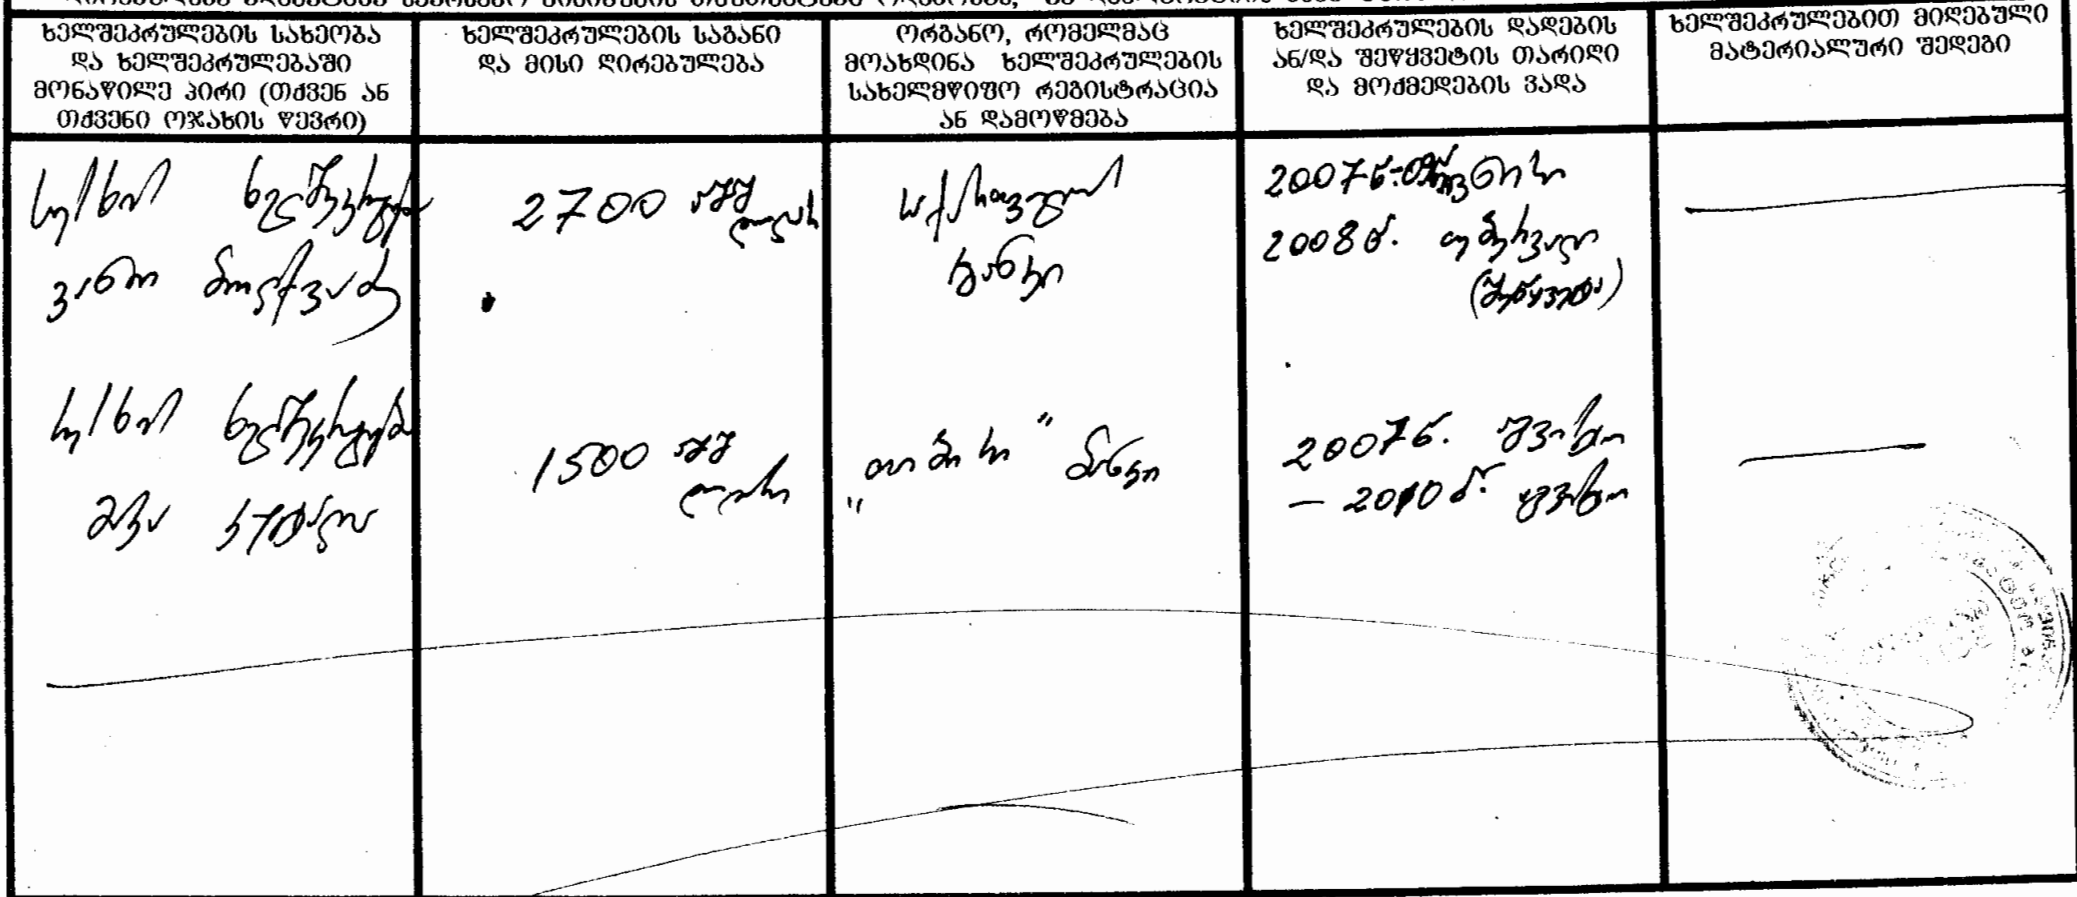 ხელშეკრულების სახეობა
და ხელშეკრულებაში
მონაწილე პირი (თქვენ ან
თქვენი ოჯახის წევრი)
ხელშეკრულების საგანი
და მისი ღირებულება
ორგანო, რომელმაც
მოახდინა ხელშეკრულების
სახელმწიფო რეგისტრაცია
ან დამოწმება
ხელშეკრულების დადების
ან/და შეწყვეტის თარიღი
და მოქმედების ვადა
ხელშეკრულებით მიღებული
მატერიალური შედეგი
სესხის ხელშეკრულება
ვანო
2700 აშშ
დოლარი
საქართველოს
ბანკი
2007წ.
2008წ. თებერვალი
(შეწყვეტა)
სესხის ხელშეკრულება
მაკა
1500 აშშ
დოლარი
"თიბისი" ბანკი
2007წ. აგვისტო
– 2010წ. აგვისტო